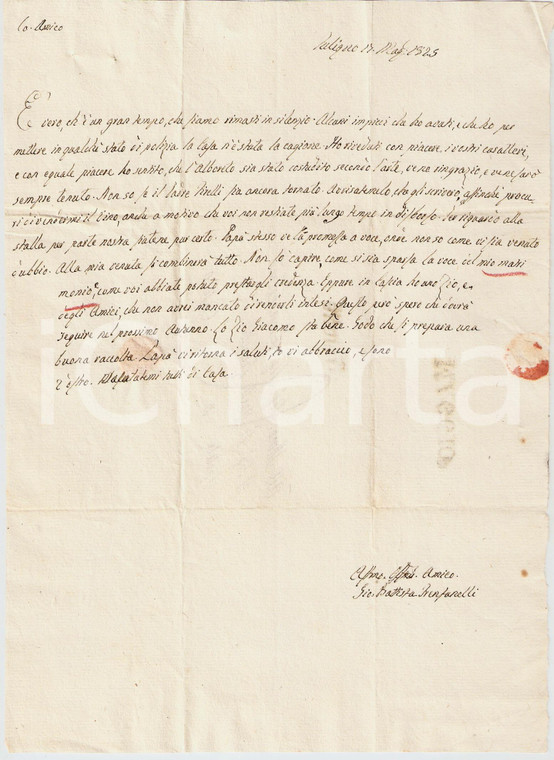 Co. Amico
Fuligno 17 Mag. 1825
È vero, ch'è un gran tempo, che siamo rimasti in silenzio. Alcuni impicci che ho avuti, e che ho per
mettere in qualche stato di pulizia la casa n'è stata la cagione. Ho riceduti con piacere i vostri cavalleri,
e con eguale piacere ho sentito, che l'alboreto sia stato costudito secondo l'arte, ve ne ringrazio, e ve ne sarò
sempre tenuto. Non so se il ancora tornato. che gli scriverò, affinchè procu-
ri di vendermi il vino, anche a motivo che voi non restiate più lungo tempo in disborso. Per riguardo alla
stalla per parte nostra potete per certo. Papà stesso ve l'à promessa a voce, onde non so come vi sia venuto
dubbio. Alla mia venuta si combinerà tutto. Non so capire come si sia sparsa la voce del mio matri
monio, e come voi abbiate potuto prestargli credenza. Eppure in cotesta ho uno Zio, e
degli Amici, che non avrei mancato di renderli intesi. Questo però spero che dovrà
seguire nel prossimo Autunno. Lo Zio Giacomo sta bene. Godo che si prepara una
buona raccolta. Papà vi ritorna i saluti, io vi abbraccio, e sono
D'estro. Salutatemi tutti di Casa
Affmo. Amico
Gio. Battista Prenfanelli
FOLIGNO
fonarta